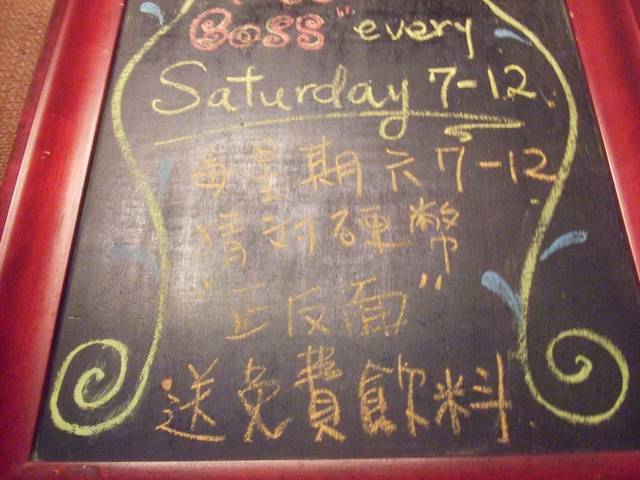 Boss" every
Saturday 7-12
每星期六7-12
猜對硬幣
"正反面"
送免費飲料